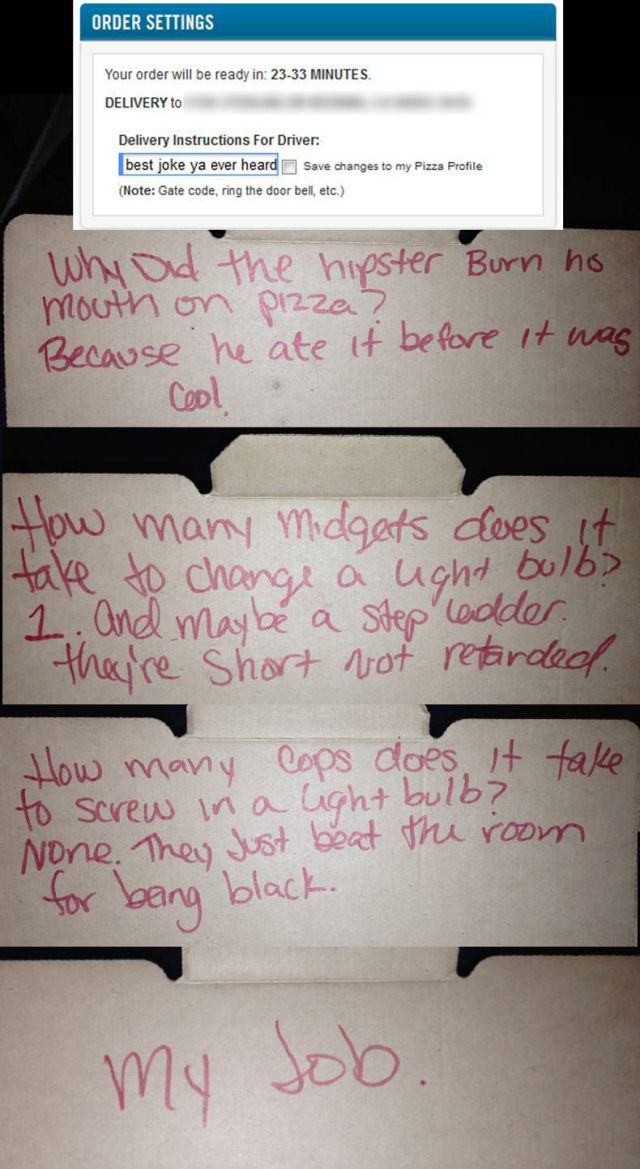 ORDER SETTINGS
Your order will be ready in: 23-33 MINUTES.
DELIVERY to
Delivery Instructions For Driver:
best joke ya ever heard Save changes to my Pizza Profile
(Note: Gate code, ring the door bell, etc.)
Why Did the hipster Burn his
mouth on pizza?
Because he ate it before it was
Cool.
How many Midgets does it
take to change a light bulb?
1. And maybe a step ladder.
they're Short Not retarded.
How many Cops does it take
to screw in a light bulb?
None. They Just beat the room
for being black.
My Job.